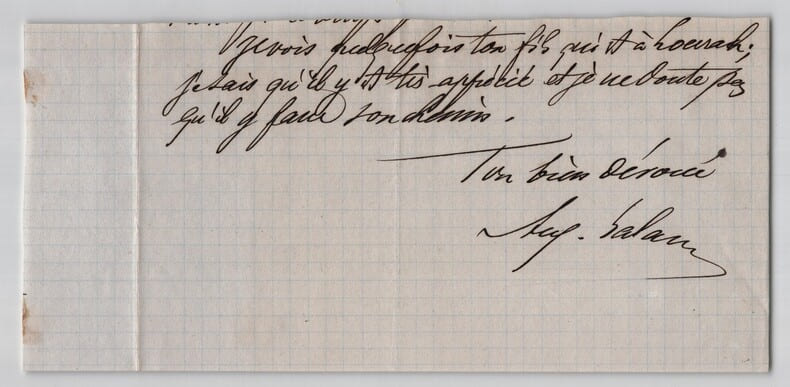 je vois quelquefois ton fils qui est à
je sais qu'il y est très apprécié et je ne doute pas
qu'il y fasse son chemin.
Ton bien dévoué
Aug. Salam